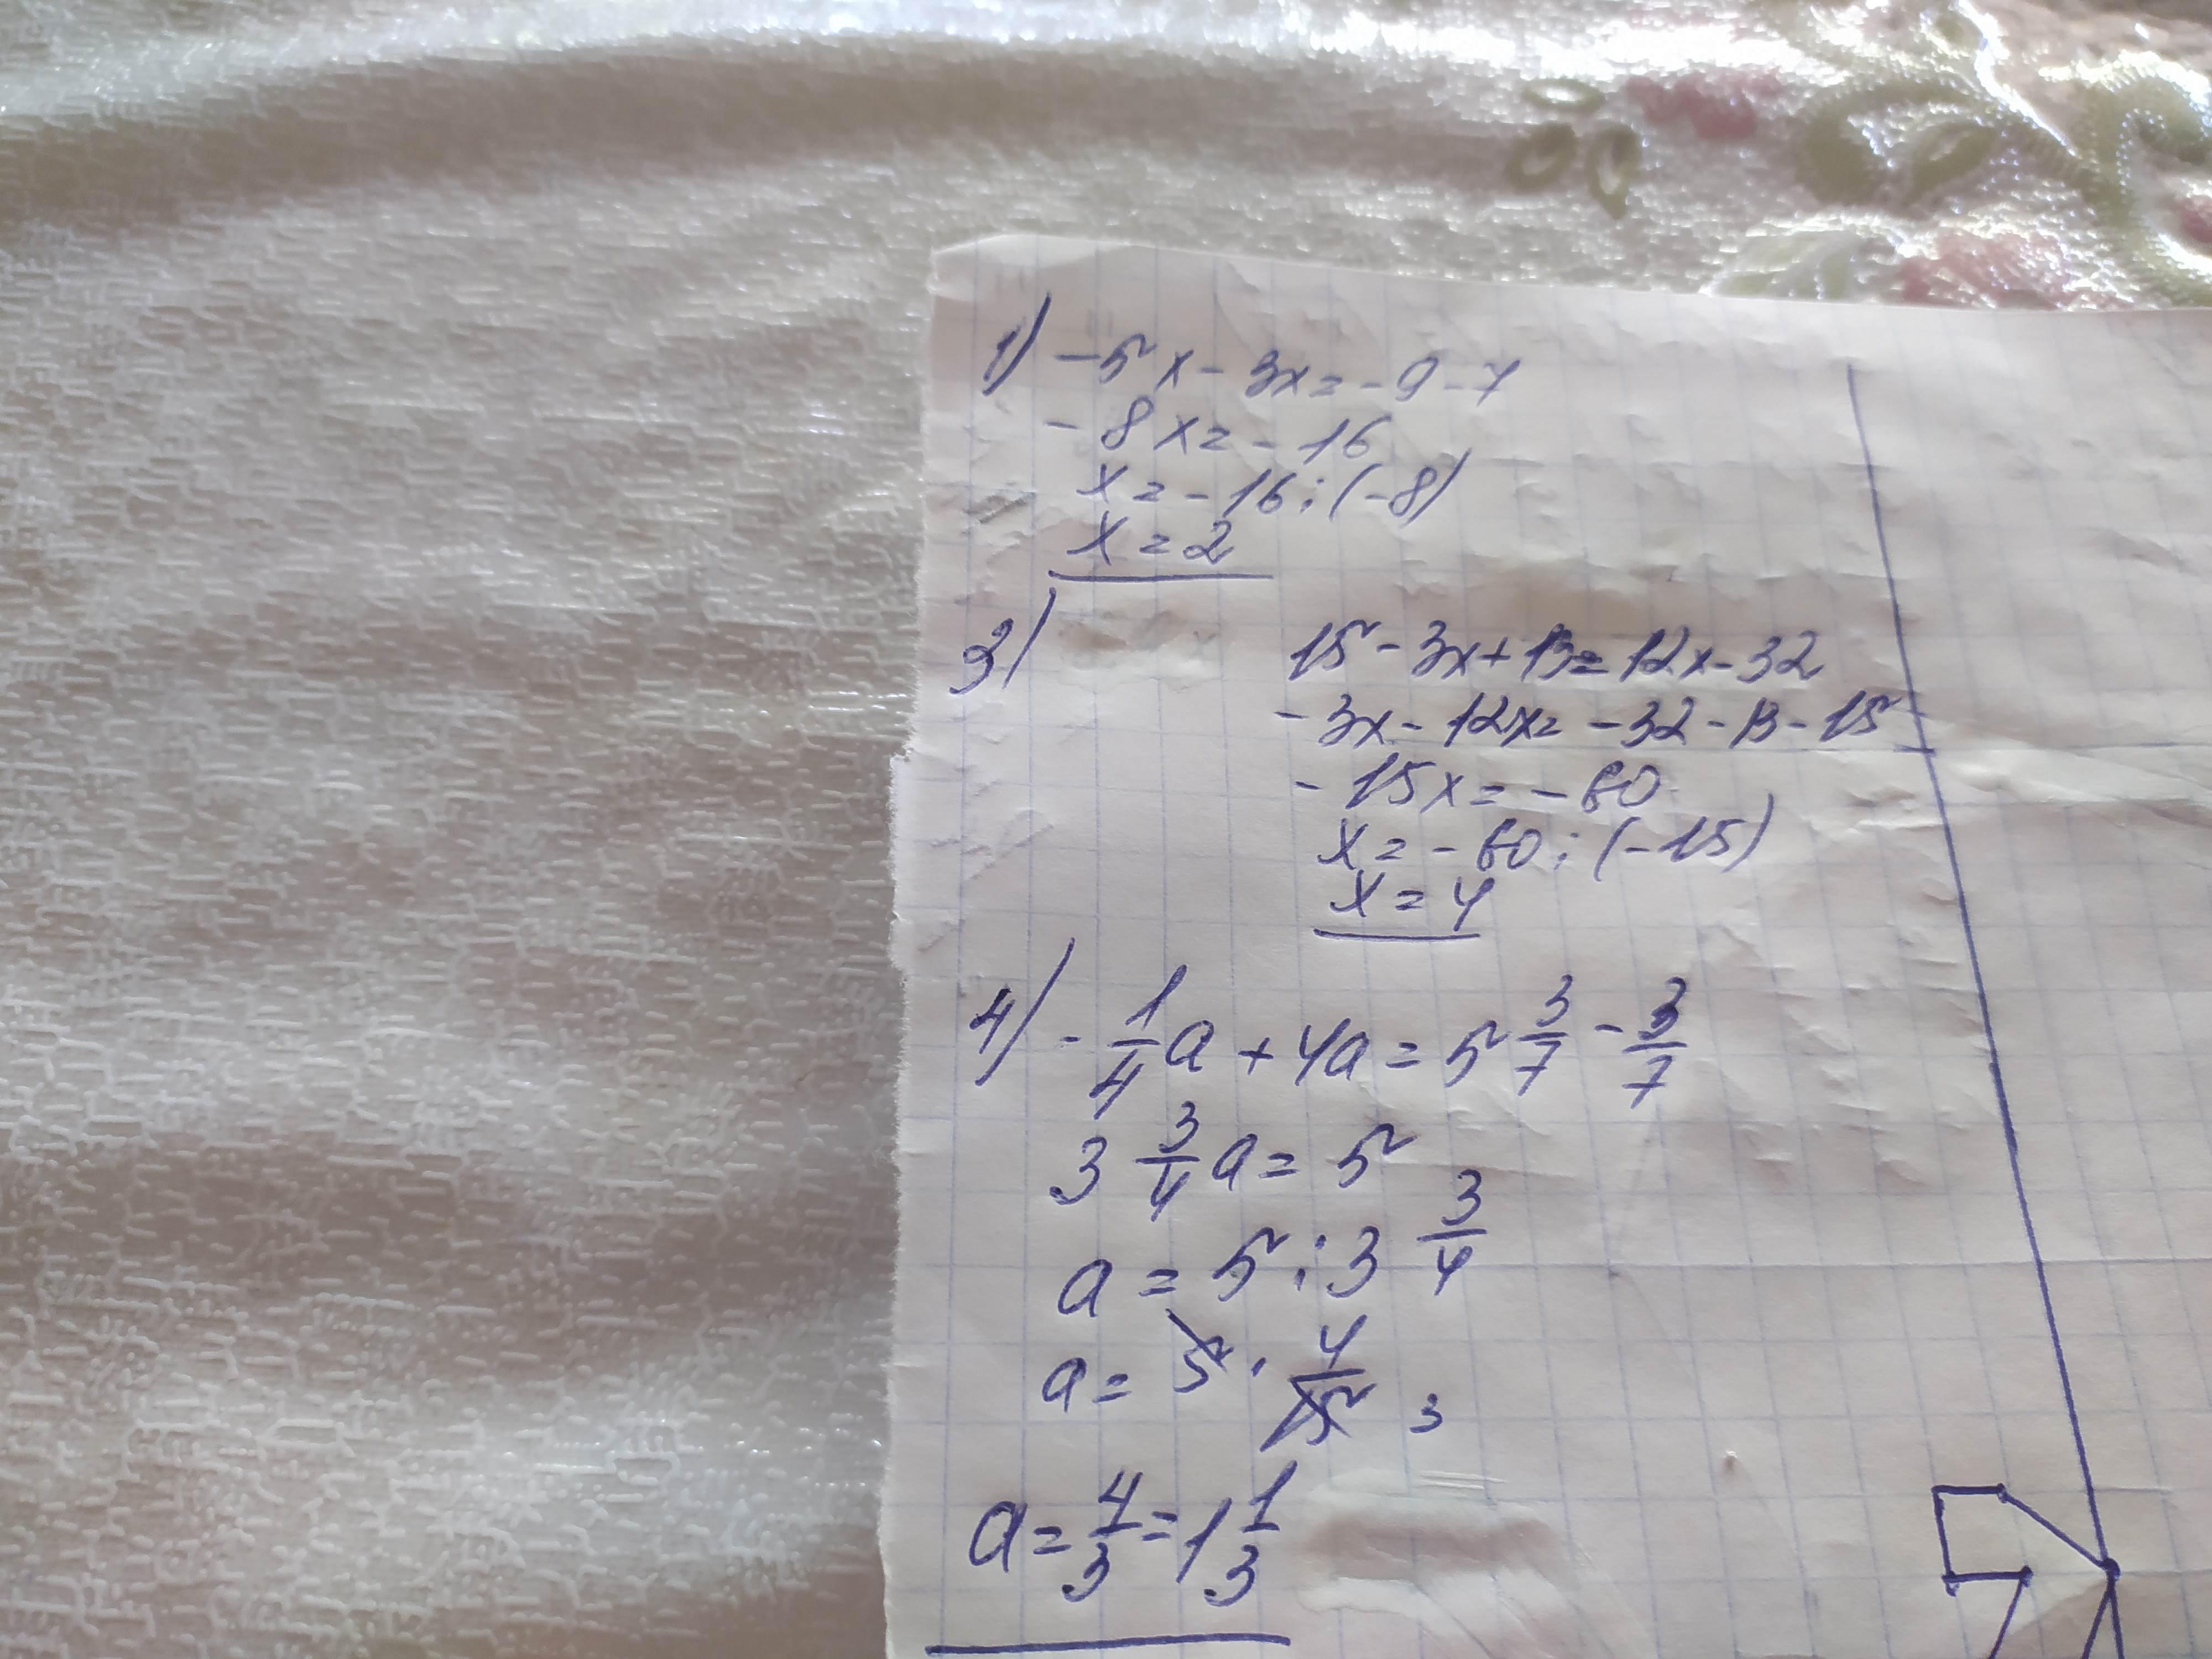 1) -5x - 3x = -9 - 7
-8x = -16
x = -16 : (-8)
x = 2
3) 15 - 3x + 13 = 12x - 32
-3x - 12x = -32 - 13 - 15
-15x = -60
x = -60 : (-15)
x = 4
4) - 1/4 a + 4a = 5 3/7 - 3/7
3 3/4 a = 5
a = 5 : 3 3/4
a = 5 · 4/15 3
a = 4/3 = 1 1/3